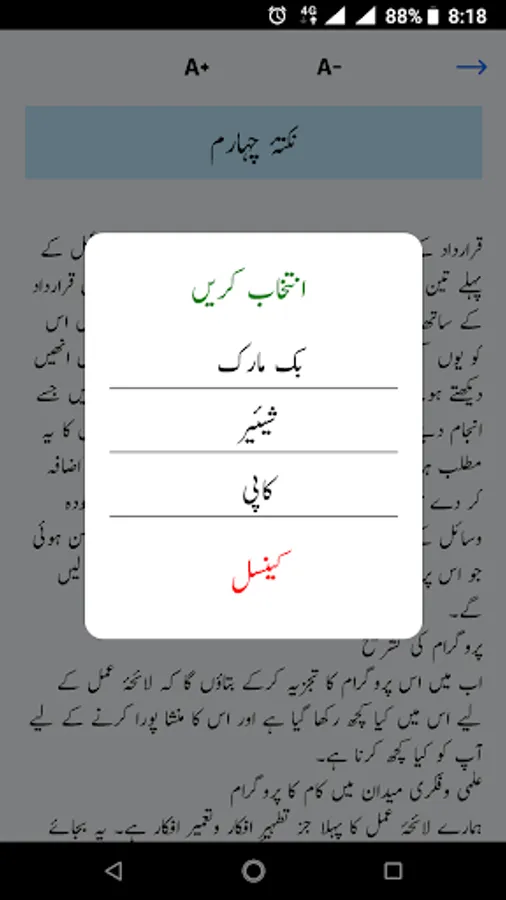 4G 88% 8:18
A+ A-
نکتۂ چہارم
قرارداد کے
پہلے تین
قرارداد
کے ساتھ
اس
کو یوں
انھیں
دیکھتے ہو
جسے
انجام دے
کا یہ
مطلب
اضافہ
کر دے
وسائل
ہوئی
جو اس پر
لیں
گے۔
انتخاب کریں
بک مارک
شیئیر
کاپی
کینسل
پروگرام کی تشریح
اب میں اس پروگرام کا تجزیہ کرکے بتاؤں گا کہ لائحۂ عمل کے
لیے اس میں کیا کچھ رکھا گیا ہے اور اس کا منشا پورا کرنے کے لیے
آپ کو کیا کچھ کرنا ہے۔
علمی وفکری میدان میں کام کا پروگرام
ہمارے لائحۂ عمل کا پہلا جز تطہیرِ افکار وتعمیرِ افکار ہے۔ یہ بجائے